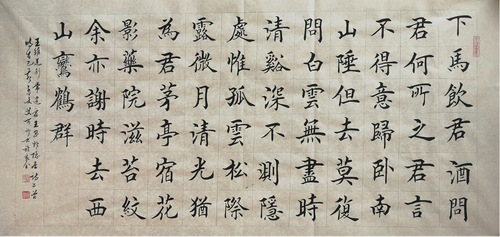 下馬飲君酒問
君何所之君言
不得意歸卧南
山陲但去莫復
問白雲無盡時
清谿深不測隱
處惟孤雲松際
露微月清光猶
為君茅亭宿花
影藥院滋苔紋
余亦謝時去西
山鸞鶴群